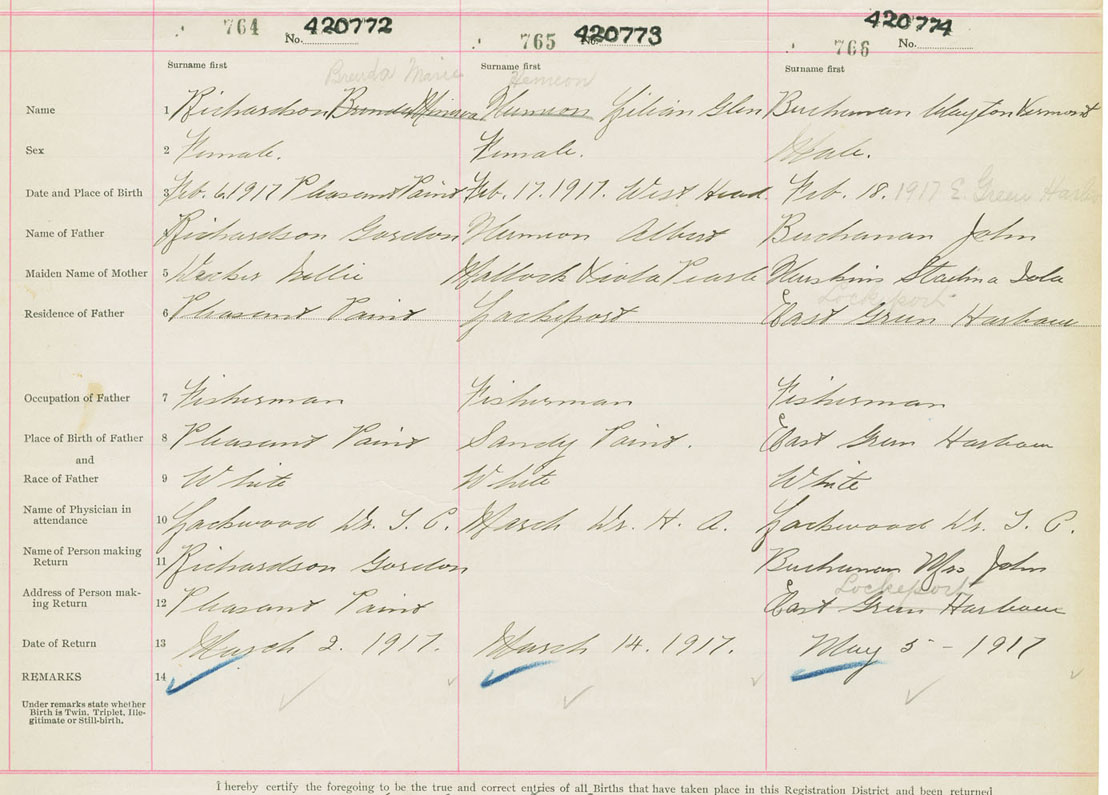 764 No. 420772 765 No. 420773 766 No. 420774
Surname first Surname first Surname first
Brenda Marie Hemeon
Name 1 Richardson Brenda Hemeon Lilian Glen Buchanan Clayton Vermont
Sex 2 Female. Female. Male.
Date and Place of Birth 3 Feb. 6. 1917 Pleasant Point Feb. 17. 1917. West Head Feb. 18. 1917 E. Green Harbo
Name of Father 4 Richardson Gordon Hemeon Albert Buchanan John
Maiden Name of Mother 5 Nellie Viola Pearle Iola
Lockeport
Residence of Father 6 Pleasant Point Lockeport East Green Harbour
Occupation of Father 7 Fisherman Fisherman Fisherman
Place of Birth of Father 8 Pleasant Point Sandy Point. East Green Harbour
and
Race of Father 9 White White White
Name of Physician in
attendance 10 Lockwood Dr. T. C. March Dr. H. A. Lockwood Dr. T. C.
Name of Person making
Return 11 Richardson Gordon Buchanan Mrs John
Lockeport
Address of Person mak-
ing Return 12 Pleasant Point East Green Harbour
Date of Return 13 March 2. 1917. March 14. 1917. May 5 - 1917
REMARKS 14
Under remarks state whether
Birth is Twin, Triplet, Ille-
gitimate or Still-birth.
I hereby certify the foregoing to be the true and correct entries of all Births that have taken place in this Registration District and been returned